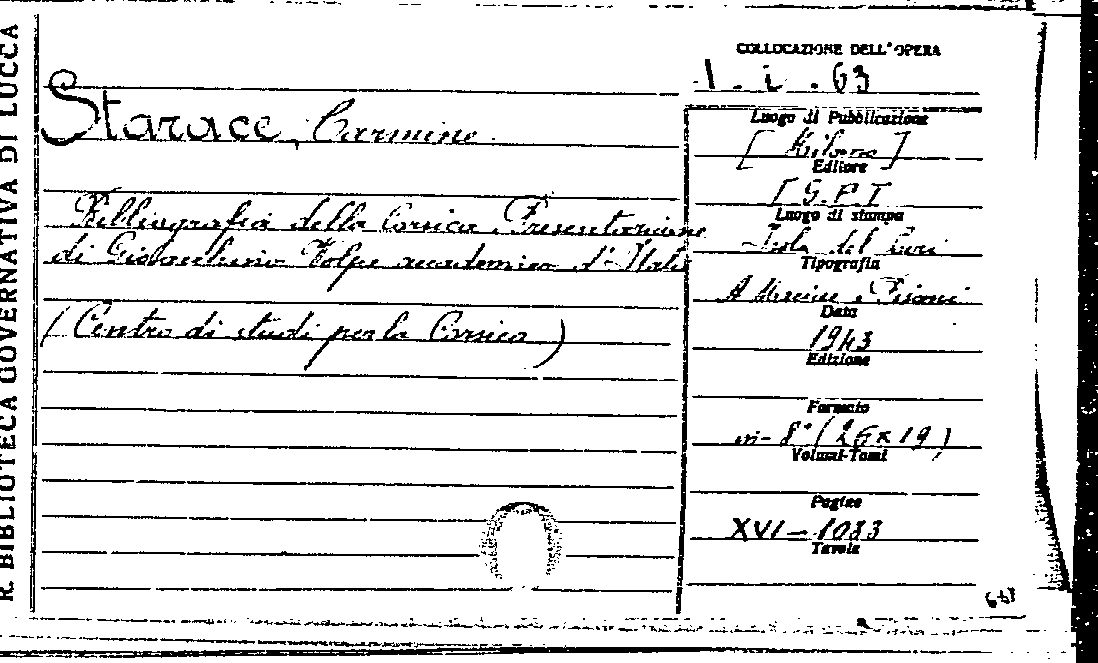 R. BIBLIOTECA GOVERNATIVA DI LUCCA
Starace, Carmine.
Bibliografia della Corsica. Presentazione
di Gioacchino Volpe accademico d'Italia
(Centro di studi per la Corsica)
COLLOCAZIONE DELL'OPERA
I. i. 63
Luogo di Pubblicazione
[Milano]
Editore
I.S.P.I
Luogo di stampa
Isola del Liri
Tipografia
A Macioce e Pisani
Data
1943
Edizione
Formato
in-8° (26x19)
Volumi-Tomi
Pagine
XVI-1083
Tavole